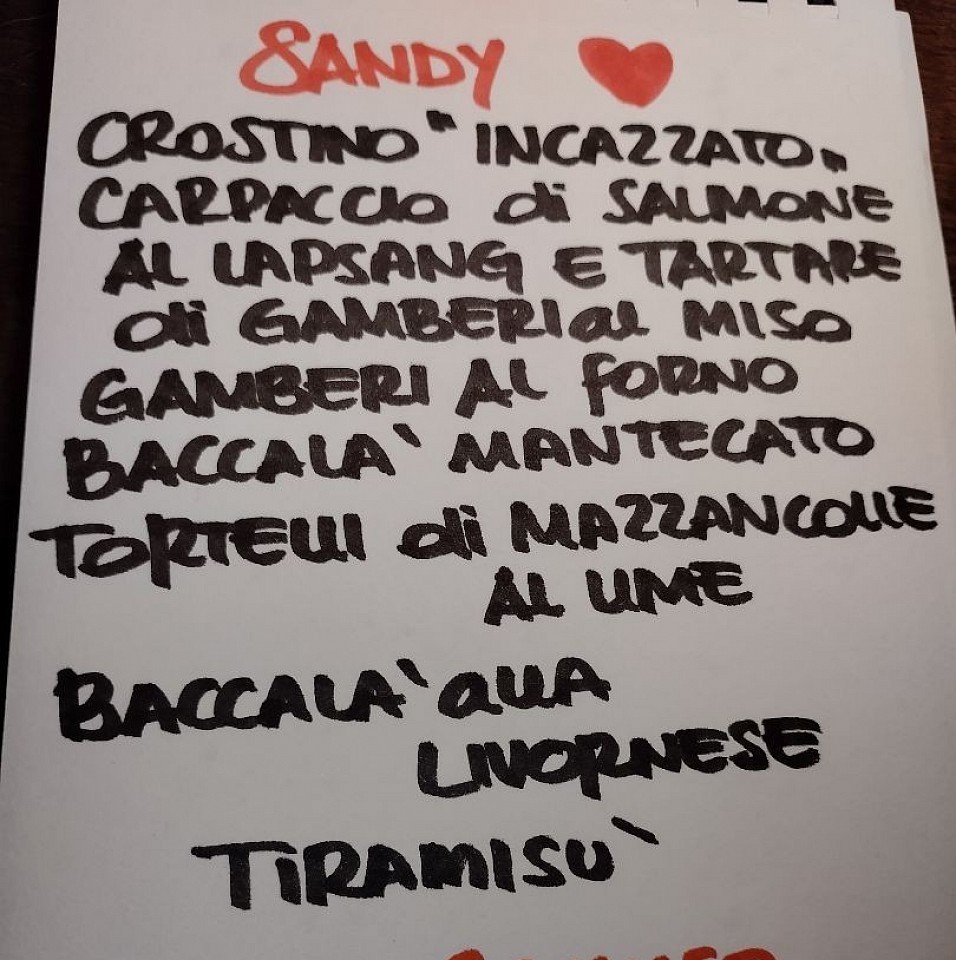 SANDY
CROSTINO "INCAZZATO"
CARPACCIO di SALMONE
AL LAPSANG E TARTARE
di GAMBERI al MISO
GAMBERI AL FORNO
BACCALA` MANTECATO
TORTELLI di MAZZANCOLLE
AL LIME
BACCALA` alla
LIVORNESE
TIRAMISU`